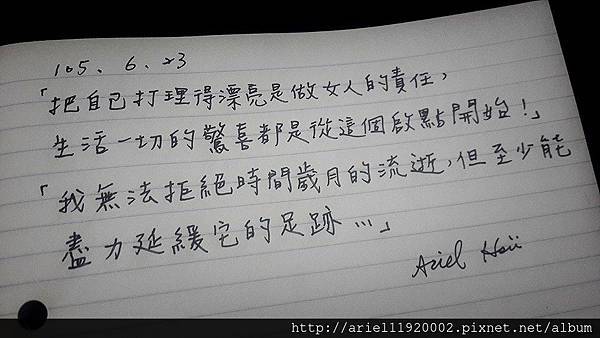 105. 6. 23
「把自己打理得漂亮是做女人的責任,
生活一切的驚喜都是從這個啟點開始!」
「我無法拒絕時間歲月的流逝,但至少能
盡力延緩它的足跡…」
Ariel Hsii
http://ariel11920002.pixnet.net/album